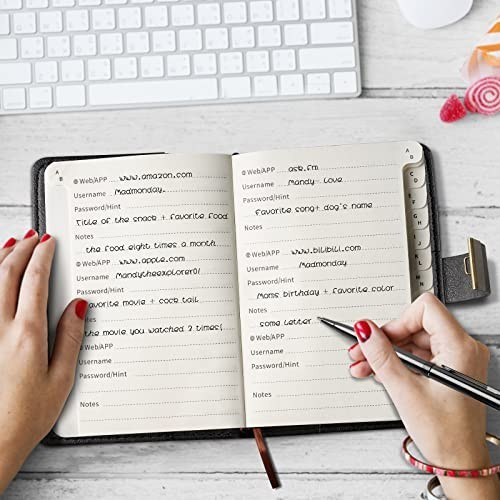 A
B
Web/APP www.amazon.com
Username Madmonday.
Password/Hint
Title of the snack + favorite food
Notes
the food eight times a month
Web/APP www.apple.com
Username Mandytheexplorer01
Password/Hint
favorite movie + cock tail
Notes
the movie you watched 3 times!
Web/APP
Username
Password/Hint
Notes
Web/APP ask.fm
Username Mandy- love
Password/Hint
favorite song+ dog's name
Notes
Web/APP www.bilibili.com
Username Madmonday
Password/Hint
Moms birthday + favorite color
Notes
some letter
Web/APP
Username
Password/Hint
Notes
A
B
C
D
F
G
H
J
K
L
M
N